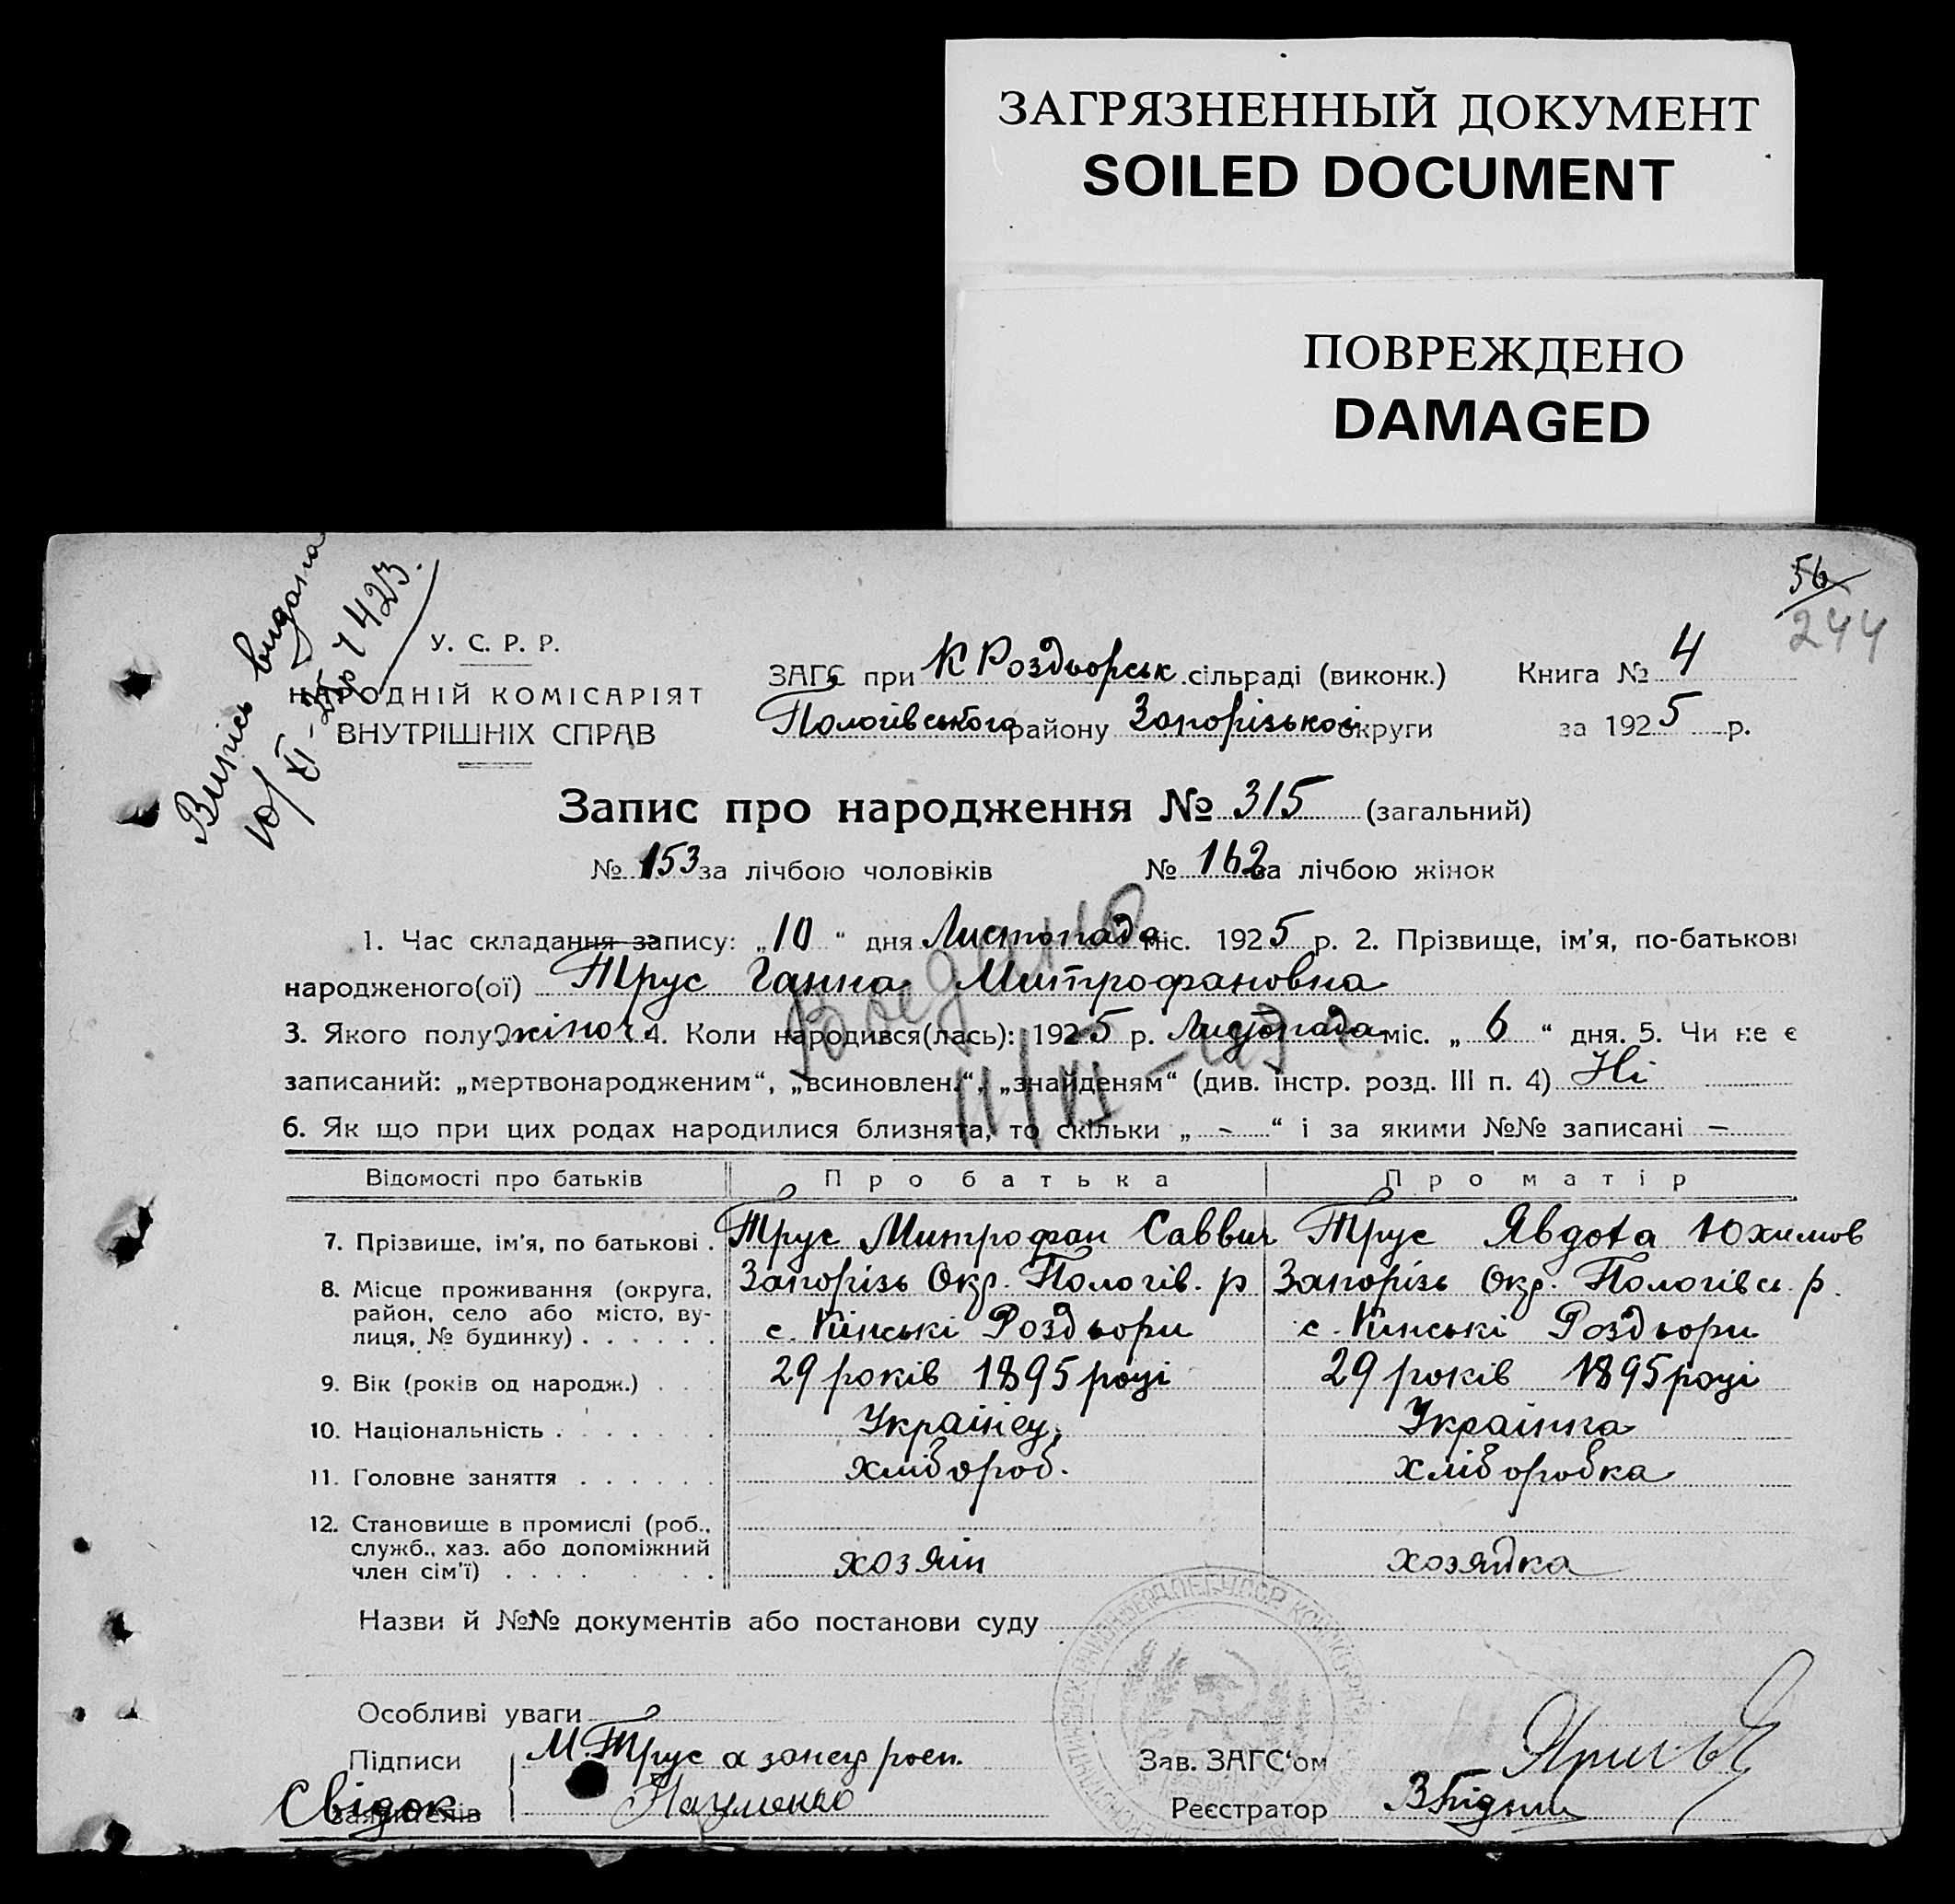 ЗАГРЯЗНЕННЫЙ ДОКУМЕНТ
SOILED DOCUMENT
ПОВРЕЖДЕНО
DAMAGED
56
244
Випись видана
10/XI-25р Ч 423.
У. С. Р. Р.
НАРОДНІЙ КОМІСАРІЯТ
ВНУТРІШНІХ СПРАВ
ЗАГС при К Роздорськ. сільраді (виконк.) Книга № 4
Пологівського району Запорізької округи за 1925 р.
Запис про народження № 315 (загальний)
№ 153 за лічбою чоловіків № 162 за лічбою жінок
1. Час складання запису: „10“ дня Листопада міс. 1925 р. 2. Прізвище, ім'я, по-батькові
народженого(ої) Трус Ганна Митрофановна
3. Якого полу жіноч. 4. Коли народився(лась): 1925 р. Листопада міс. „6“ дня. 5. Чи не є
записаний: „мертвонародженим“, „всиновлен.“, „знайденям“ (див. інстр. розд. III п. 4) Ні
6. Як що при цих родах народилися близнята, то скільки „-“ і за якими №№ записані -
11/VI
Відомості про батьків Про батька Про матір
7. Прізвище, ім'я, по батькові . Трус Митрофан Саввич Трус Явдота Юхимов
8. Місце проживання (округа, район, село або місто, вулиця, № будинку) . . . . . . Запорізь Окр. Пологів. р с. Кінські Роздьори Запорізь Окр. Пологівсь р. с. Кінські Роздьори
9. Вік (років од народж.) . . . 29 років 1895 році 29 років 1895 році
10. Національність . . . . . . . Українец. Украінка
11. Головне заняття . . . . . . хлібороб. хліборобка
12. Становище в промислі (роб., служб., хаз. або допоміжний член сім'ї) . . . . . . . . . хозяін хозяйка
Назви й №№ документів або постанови суду
Особливі уваги
Підписи М. Трус а за нег росп. Зав. ЗАГС'ом
Свідок заявителів Науменко Реєстратор